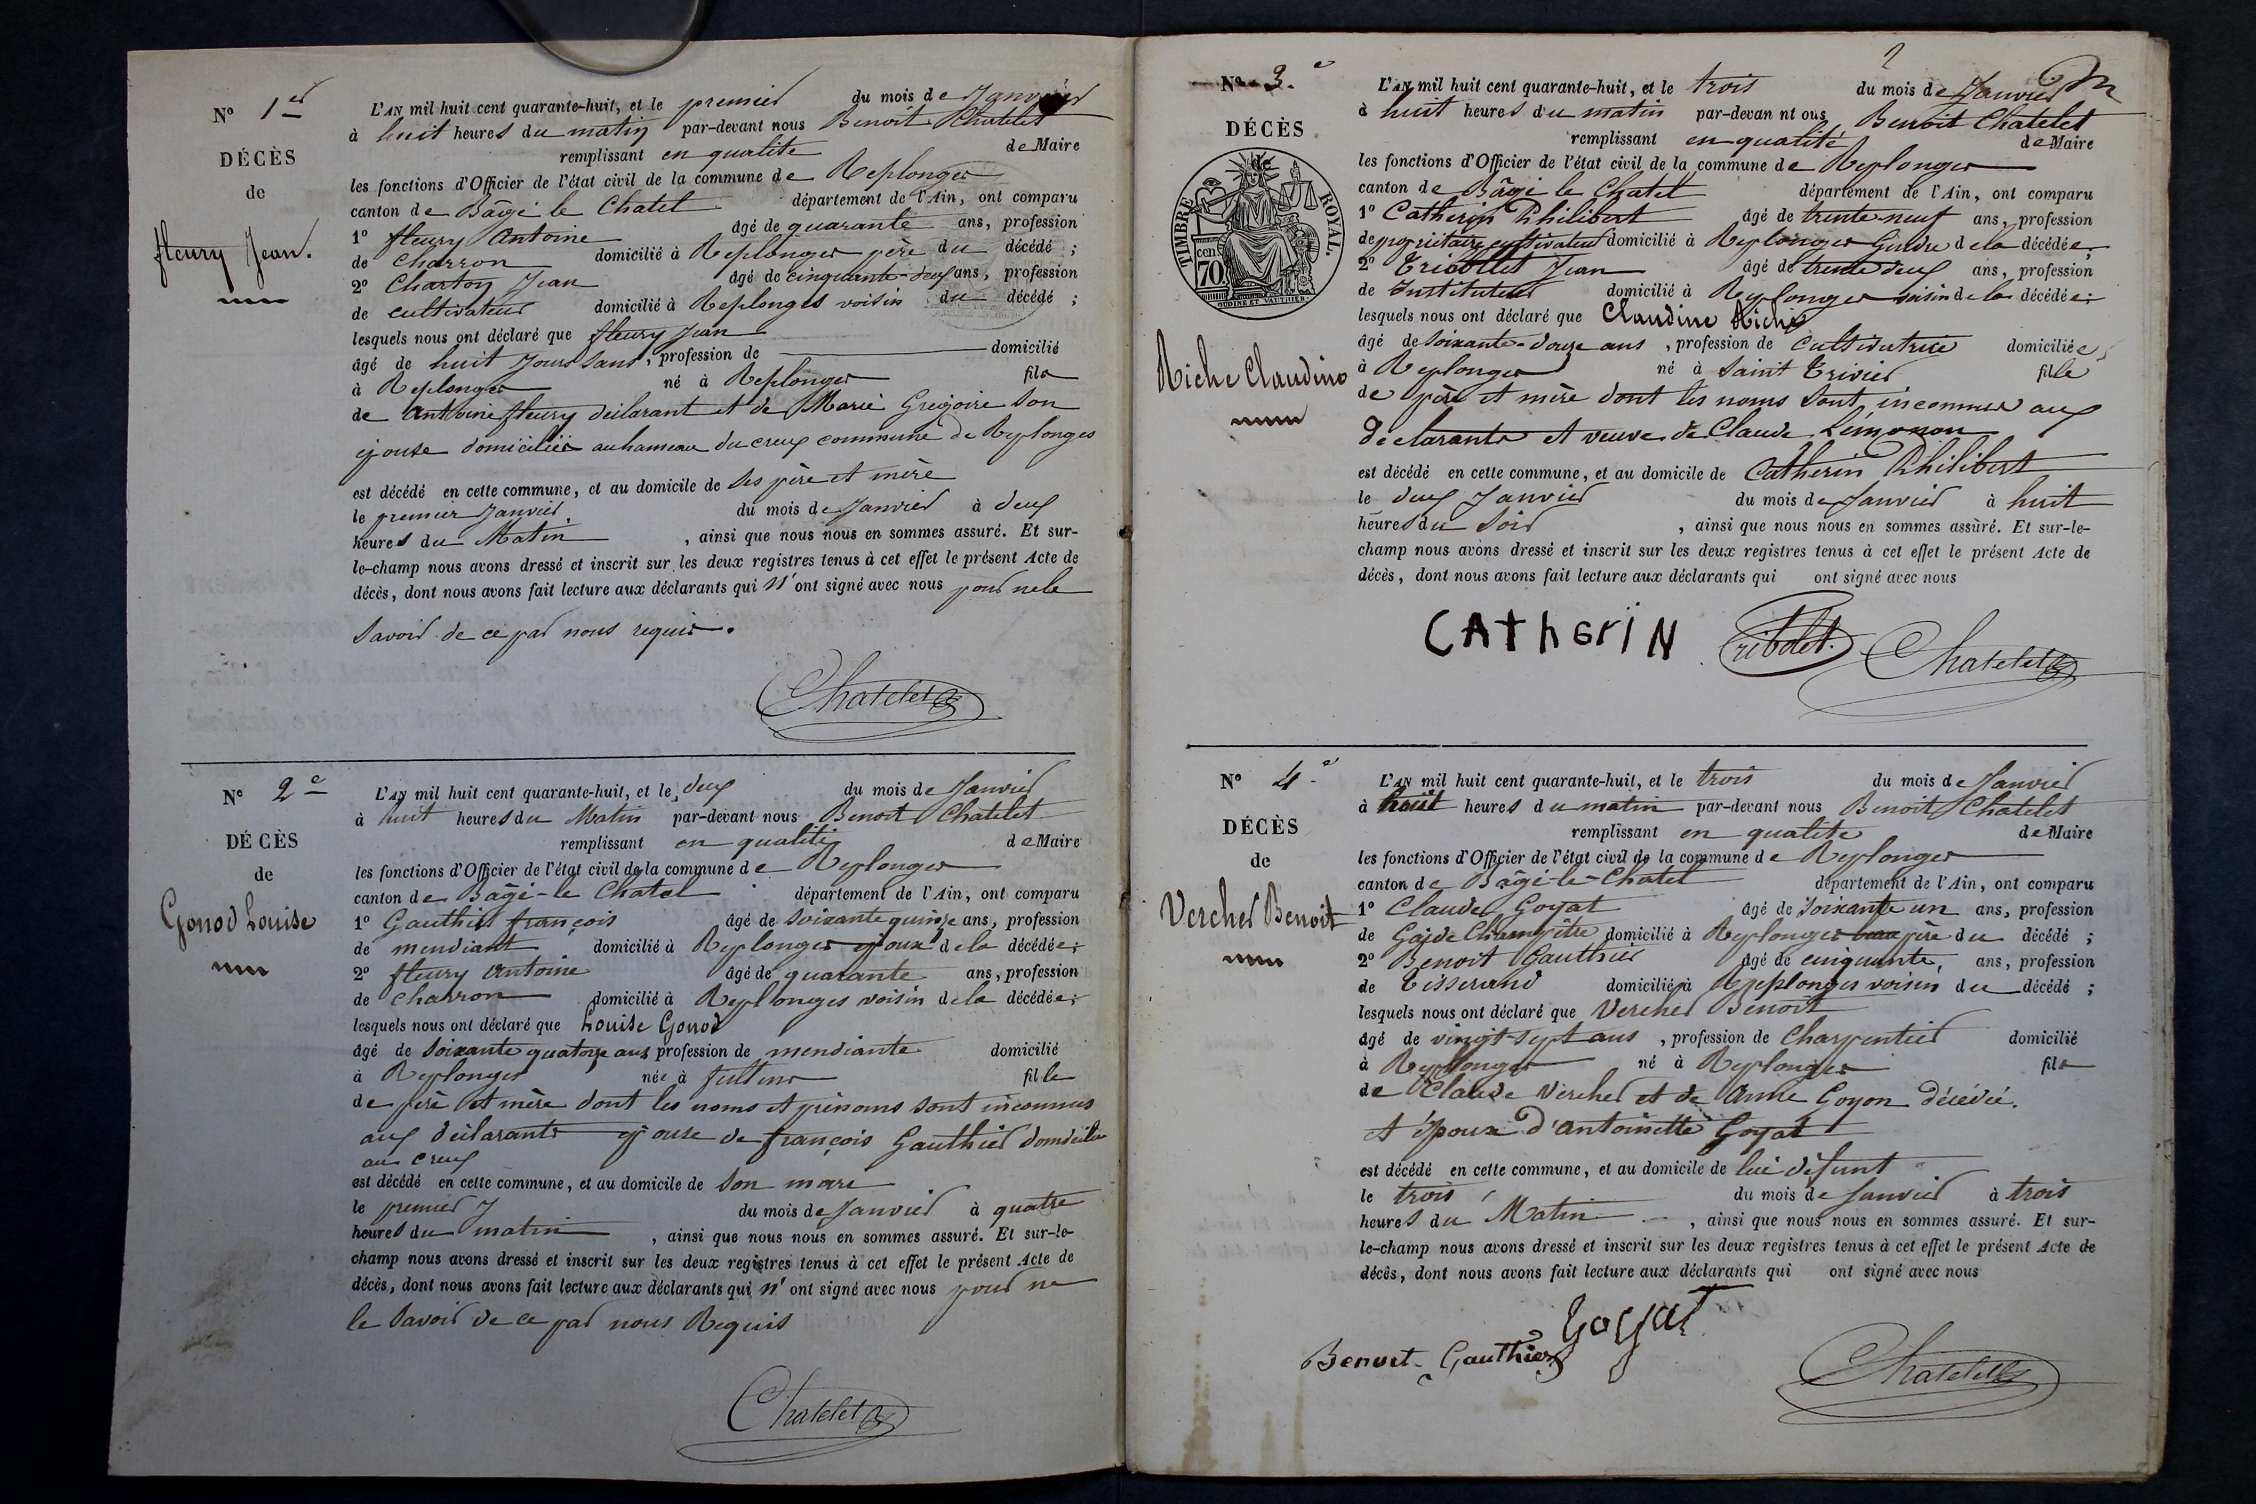 N° 1er
DÉCÈS
de
fleury Jean.
L'AN mil huit cent quarante-huit, et le premier du mois de Janvier
à huit heures du matin par-devant nous Benoit Chatelet
remplissant en qualité de Maire
les fonctions d'Officier de l'état civil de la commune de Replonges
canton de Bâgé le Chatel département de l'Ain, ont comparu
1° fleury Antoine âgé de quarante ans, profession
de Charron domicilié à Replonges père du décédé ;
2° Charton Jean âgé de cinquante-deux ans, profession
de cultivateur domicilié à Replonges voisin du décédé ;
lesquels nous ont déclaré que fleury Jean
âgé de huit Jours sans, profession de domicilié
à Replonges né à Replonges fils
de Antoine fleury déclarant et de Marie Gregoire son
épouse domiciliés au hameau du creux commune de Replonges
est décédé en cette commune, et au domicile de ses père et mère
le premier Janvier du mois de Janvier à deux
heures du Matin, ainsi que nous nous en sommes assuré. Et sur-
le-champ nous avons dressé et inscrit sur les deux registres tenus à cet effet le présent Acte de
décès, dont nous avons fait lecture aux déclarants qui n'ont signé avec nous pour ne le
savoir de ce par nous requis.
Chatelet
N° 2e
DÉCÈS
de
Gonod Louise
L'AN mil huit cent quarante-huit, et le deux du mois de Janvier
à huit heures du Matin par-devant nous Benoit Chatelet
remplissant en qualité de Maire
les fonctions d'Officier de l'état civil de la commune de Replonges
canton de Bâgé-le Chatel département de l'Ain, ont comparu
1° Gauthier françois âgé de soixante quinze ans, profession
de mendiant domicilié à Replonges époux de la décédée ;
2° fleury Antoine âgé de quarante ans, profession
de charron domicilié à Replonges voisin de la décédée ;
lesquels nous ont déclaré que Louise Gonod
âgé de soixante quatorze ans profession de mendiante domicilié
à Replonges née à fille
de père et mère dont les noms et prénoms sont inconnus
aux déclarants épouse de françois Gauthier domicilié
au creux
est décédé en cette commune, et au domicile de son mari
le premier J du mois de Janvier à quatre
heures du matin, ainsi que nous nous en sommes assuré. Et sur-le-
champ nous avons dressé et inscrit sur les deux registres tenus à cet effet le présent Acte de
décès, dont nous avons fait lecture aux déclarants qui n'ont signé avec nous pour ne
le savoir de ce par nous Requis
Chatelet
N° 3e
DÉCÈS
de
TIMBRE ROYAL.
70 cent
OUDINÉ ET VAUTHIER
Riche Claudine
2
L'AN mil huit cent quarante-huit, et le trois du mois de Janvier
à huit heures du matin par-devant nous Benoit Chatelet
remplissant en qualité de Maire
les fonctions d'Officier de l'état civil de la commune de Replonges
canton de Bâgé le Chatel département de l'Ain, ont comparu
1° Catherin Philibert âgé de trente-neuf ans, profession
de propriétaire cultivateur domicilié à Replonges Gendre de la décédée ;
2° Tribollet Jean âgé de trente deux ans, profession
de Instituteur domicilié à Replonges voisin de la décédée ;
lesquels nous ont déclaré que Claudine Riche
âgé de soixante-douze ans, profession de cultivatrice domiciliée
à Replonges né à Saint Trivier fille
de père et mère dont les noms sont inconnus aux
déclarants et veuve de Claude Limonon
est décédé en cette commune, et au domicile de Catherin Philibert
le deux Janvier du mois de Janvier à huit
heures du Soir, ainsi que nous nous en sommes assuré. Et sur-le-
champ nous avons dressé et inscrit sur les deux registres tenus à cet effet le présent Acte de
décès, dont nous avons fait lecture aux déclarants qui ont signé avec nous
CAthEriN Tribolet. Chatelet
N° 4e
DÉCÈS
de
Vercher Benoit
L'AN mil huit cent quarante-huit, et le trois du mois de Janvier
à huit heures du matin par-devant nous Benoit Chatelet
remplissant en qualité de Maire
les fonctions d'Officier de l'état civil de la commune de Replonges
canton de Bâgé-le-Chatel département de l'Ain, ont comparu
1° Claude Goyat âgé de soixante un ans, profession
de Garde Champêtre domicilié à Replonges beau père du décédé ;
2° Benoit Gauthier âgé de cinquante, ans, profession
de Tisserand domicilié à Replonges voisin du décédé ;
lesquels nous ont déclaré que Vercher Benoit
âgé de vingt-sept ans, profession de Charpentier domicilié
à Replonges né à Replonges fils
de Claude Vercher et de Anne Goyon décédée.
et époux d'Antoinette Goyat
est décédé en cette commune, et au domicile de lui défunt
le trois du mois de Janvier à trois
heures du Matin, ainsi que nous nous en sommes assuré. Et sur-
le-champ nous avons dressé et inscrit sur les deux registres tenus à cet effet le présent Acte de
décès, dont nous avons fait lecture aux déclarants qui ont signé avec nous
Goyat
Benoit Gauthier Chatelet